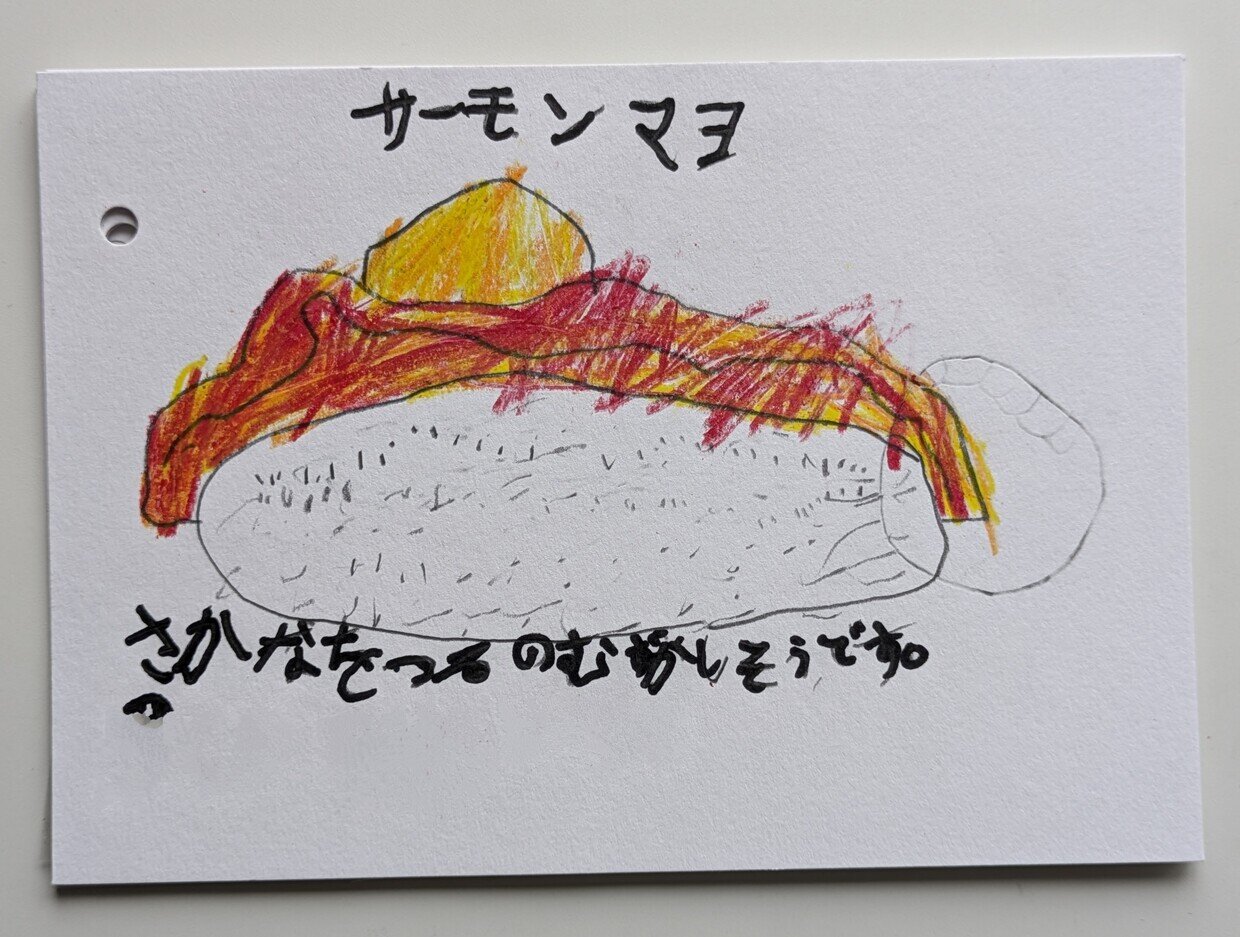 サーモンマヨ
さかなをつるのむずかしそうです。
の